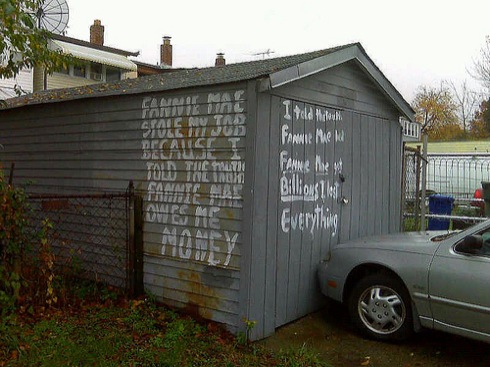 FANNIE MAE
STOLE MY JOB
BECAUSE I
TOLD THE TRUTH
FANNIE MAE
OWES ME
MONEY
I told the truth
Fannie Mae
Fannie Mae got
Billions I lost
Everything